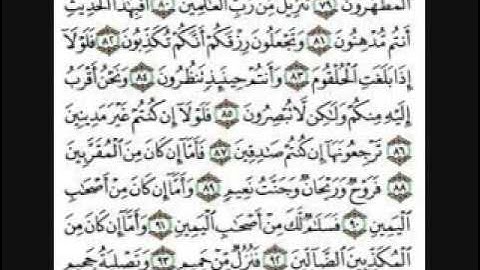 الْمُطَهَّرُونَ ﴿٧٩﴾ تَنزِيلٌ مِّن رَّبِّ الْعَالَمِينَ ﴿٨٠﴾ أَفَبِهَٰذَا الْحَدِيثِ
أَنتُم مُّدْهِنُونَ ﴿٨١﴾ وَتَجْعَلُونَ رِزْقَكُمْ أَنَّكُمْ تُكَذِّبُونَ ﴿٨٢﴾ فَلَوْلَا
إِذَا بَلَغَتِ الْحُلْقُومَ ﴿٨٣﴾ وَأَنتُمْ حِينَئِذٍ تَنظُرُونَ ﴿٨٤﴾ وَنَحْنُ أَقْرَبُ
إِلَيْهِ مِنكُمْ وَلَٰكِن لَّا تُبْصِرُونَ ﴿٨٥﴾ فَلَوْلَا إِن كُنتُمْ غَيْرَ مَدِينِينَ
﴿٨٦﴾ تَرْجِعُونَهَا إِن كُنتُمْ صَادِقِينَ ﴿٨٧﴾ فَأَمَّا إِن كَانَ مِنَ الْمُقَرَّبِينَ
﴿٨٨﴾ فَرَوْحٌ وَرَيْحَانٌ وَجَنَّتُ نَعِيمٍ ﴿٨٩﴾ وَأَمَّا إِن كَانَ مِنْ أَصْحَابِ
الْيَمِينِ ﴿٩٠﴾ فَسَلَامٌ لَّكَ مِنْ أَصْحَابِ الْيَمِينِ ﴿٩١﴾ وَأَمَّا إِن كَانَ مِنَ
الْمُكَذِّبِينَ الضَّالِّينَ ﴿٩٢﴾ فَنُزُلٌ مِّنْ حَمِيمٍ ﴿٩٣﴾ وَتَصْلِيَةُ جَحِيمٍ